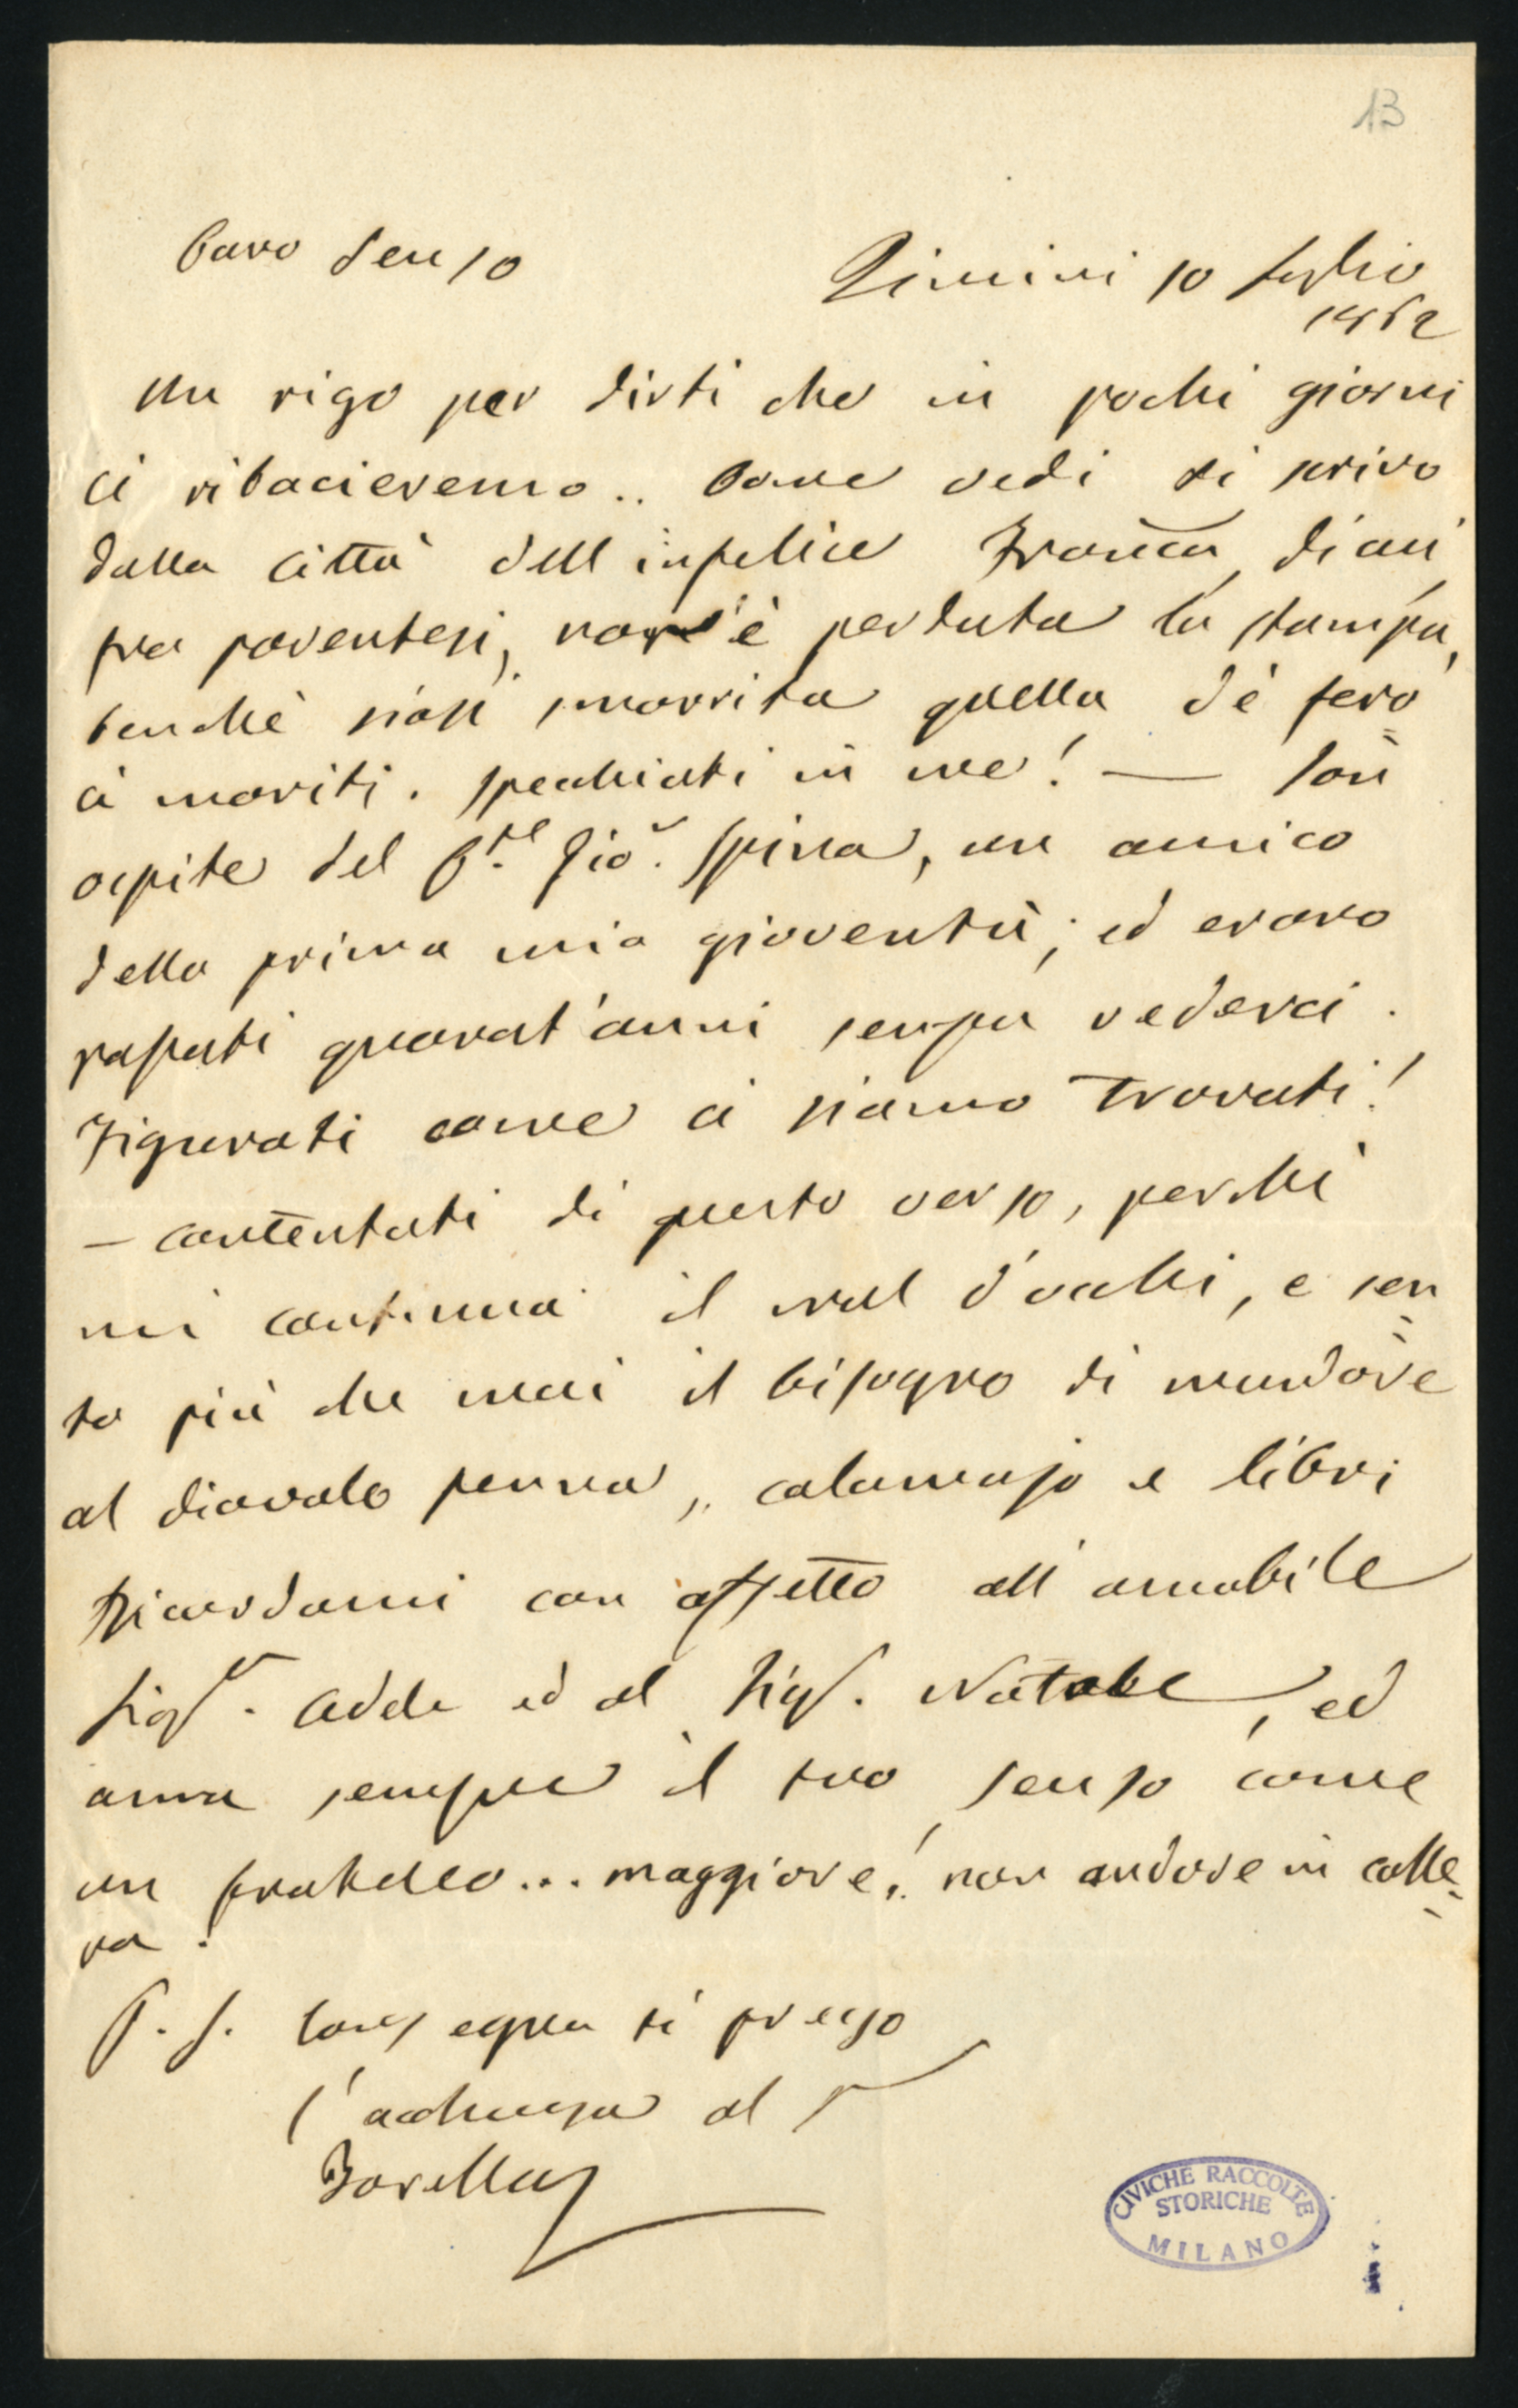 13
Caro Senso
Rimini 10 luglio
1862
Un rigo per dirti che in pochi giorni
ci ribacieremo.. Come vedi ti scrivo
dalla città dell'infelice Franca, di cui,
fra parentesi, non s'è perduta la stampa,
benchè siasi smarrita quella de' fero=
ci mariti. Specchiati in me! — Son
ospite del C.te Gio. Spina, un amico
della prima mia gioventù; ed erano
passati quarant'anni senza vederci.
Figurati come ci siamo trovati!
— contentati di questo verso, perchè
mi continua il mal d'occhi, e sen=
to più che mai il bisogno di mandare
al diavolo penna, calamajo e libri
Ricordami con affetto all'amabile
Sig.ra Adele ed al Sig.r Natale, ed
ama sempre il tuo Senso come
un fratello... maggiore! non andare in colle=
ra.
P. S. Consegna ti prego
l'acchiusa al
Borella
CIVICHE RACCOLTE
STORICHE
MILANO